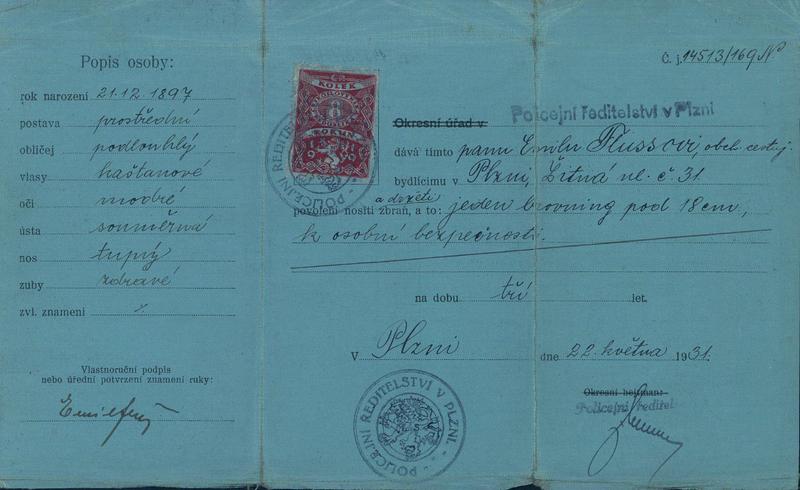 Popis osoby:
rok narození 21.12.1897
postava prostřední
obličej podlouhlý
vlasy kaštanové
oči modré
ústa souměrná
nos tupý
zuby zdravé
zvl. znamení
Vlastnoruční podpis
nebo úřední potvrzení znamení ruky:
KOLEK
8
KORUN
POLICEJNÍ ŘEDITELSTVÍ V PLZNI
Č. j. 14513/169
Okresní úřad v Policejní ředitelství v Plzni
dává tímto panu Emilu Flussovi, obch. cestuj.
bydlícímu v Plzni, Žitná ul. č. 31
a držeti
povolení nositi zbraň, a to: jeden browning pod 18 cm,
k osobní bezpečnosti.
na dobu tří let.
V Plzni dne 22. května 1931.
POLICEJNÍ ŘEDITELSTVÍ V PLZNI.
Okresní hejtman:
Policejní ředitel